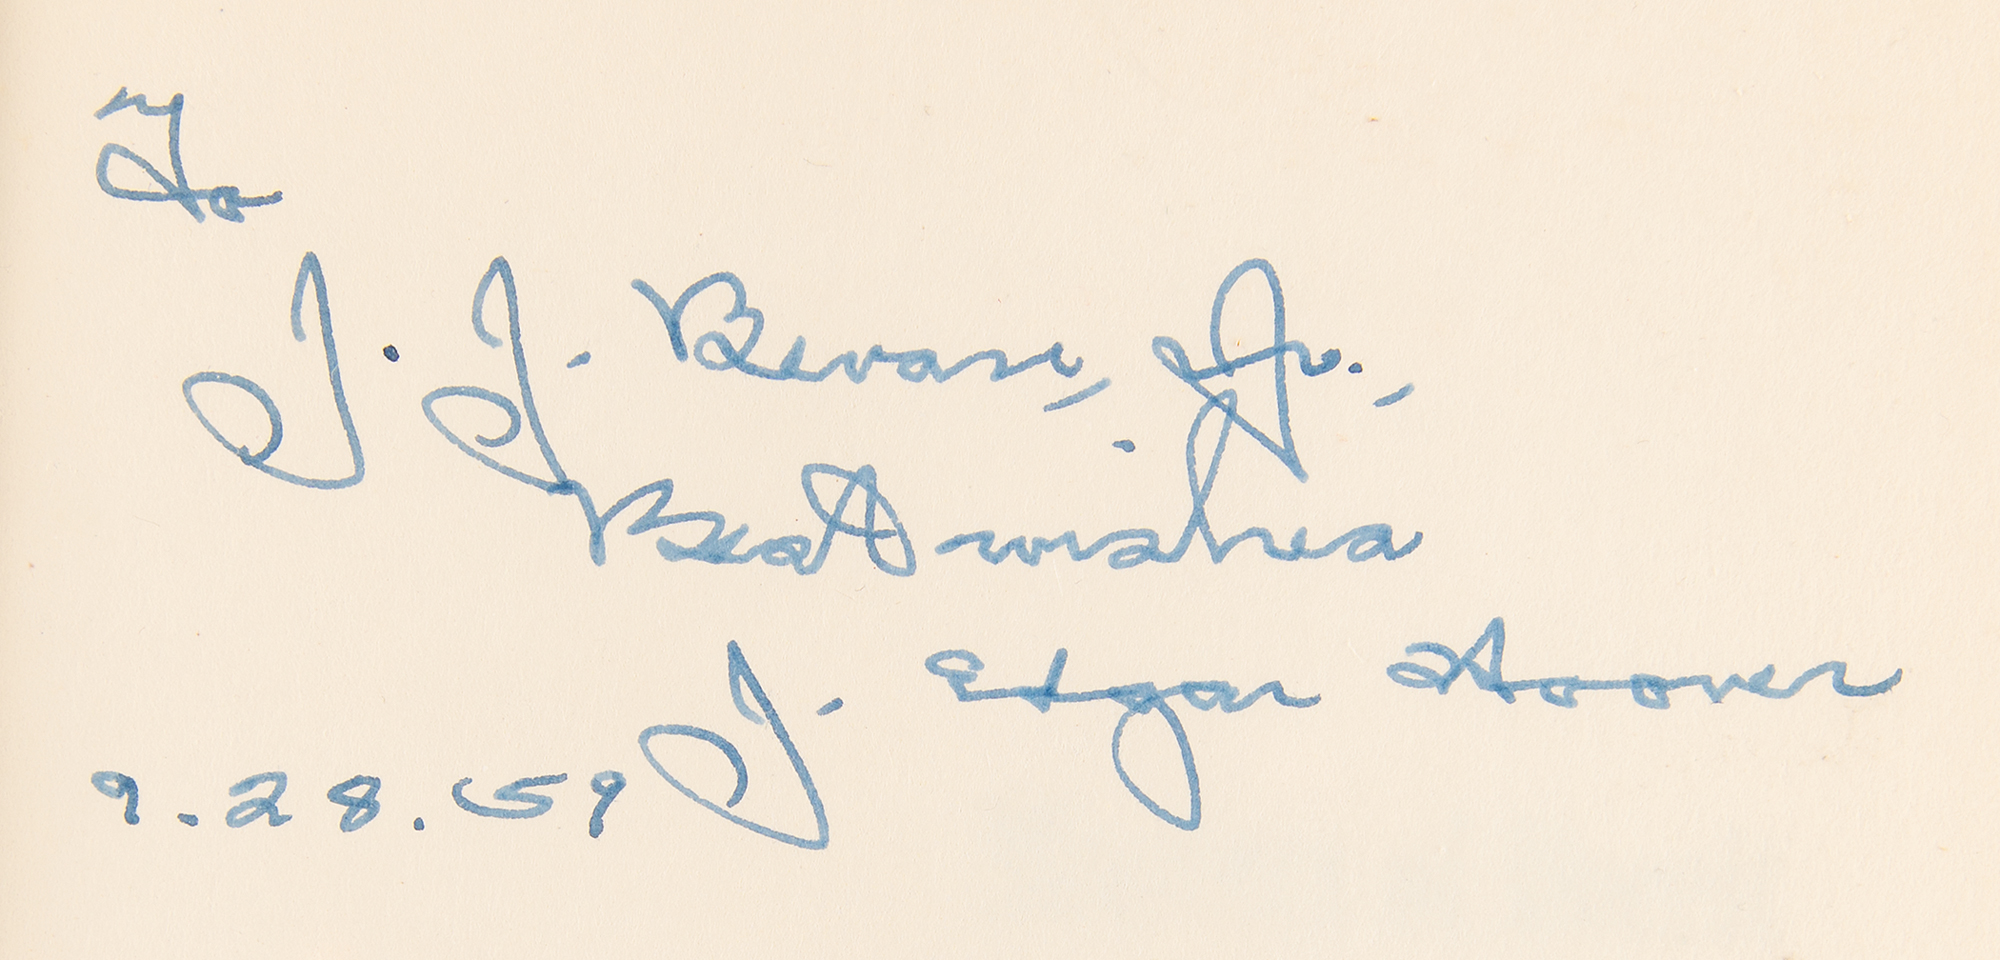 To
J. J. Bevan, Jr.,
Best wishes
J. Edgar Hoover
9.28.59